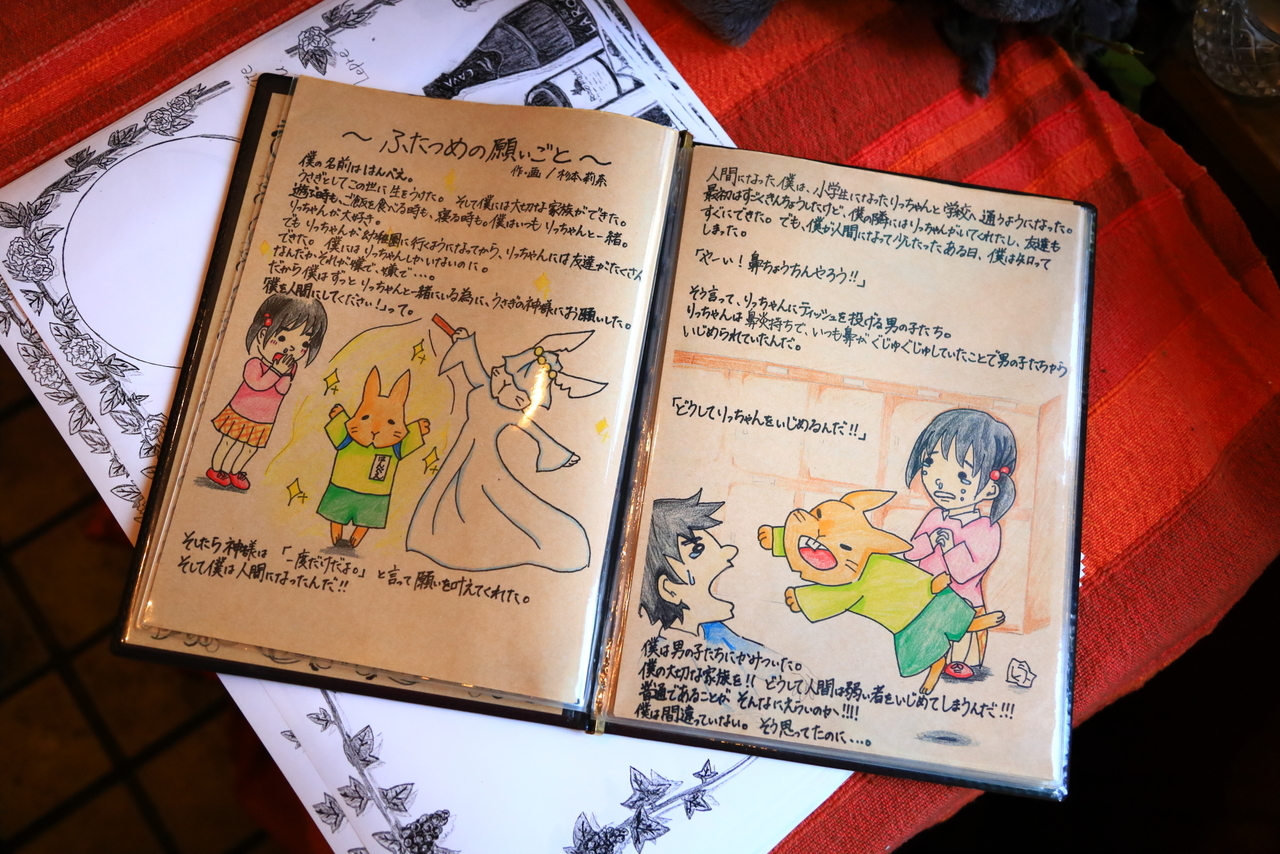 ～ ふたつめの願いごと ～
作・画 / 杉本莉奈
僕の名前ははんぺえ。
うさぎとしてこの世に生をうけた。そして僕には大切な家族ができた。
遊ぶ時も、ご飯を食べる時も、寝る時も。僕はいつもりっちゃんと一緒。
りっちゃんが大好き。
でもりっちゃんが幼稚園に行くようになってから、りっちゃんには友達がたくさん
できた。僕にはりっちゃんしかいないのに。
なんだかそれが嫌で、嫌で…。
だから僕はずっとりっちゃんと一緒にいる為に、うさぎの神様にお願いした。
「僕を人間にしてください！」って。
そしたら神様は「一度だけだよ。」と言って願いを叶えてくれた。
そして僕は人間になったんだ!!
人間になった僕は、小学生になったりっちゃんと学校へ通うようになった。
最初はすごくきんちょうしたけど、僕の隣にはりっちゃんがいてくれたし、友達も
すぐにできた。でも、僕が人間になって少したったある日、僕は知って
しまった。
「やーい！鼻ちょうちんやろう!!」
そう言って、りっちゃんにティッシュを投げる男の子たち。
りっちゃんは鼻炎持ちで、いつも鼻がぐじゅぐじゅしていたことで男の子たちから
いじめられていたんだ。
「どうしてりっちゃんをいじめるんだ!!」
僕は男の子たちにかみついた。
僕の大切な家族を!! どうして人間は弱い者をいじめてしまうんだ!!!
普通であることが、そんなにえらいのか!!!!
僕は間違っていない。そう思ってたのに…。